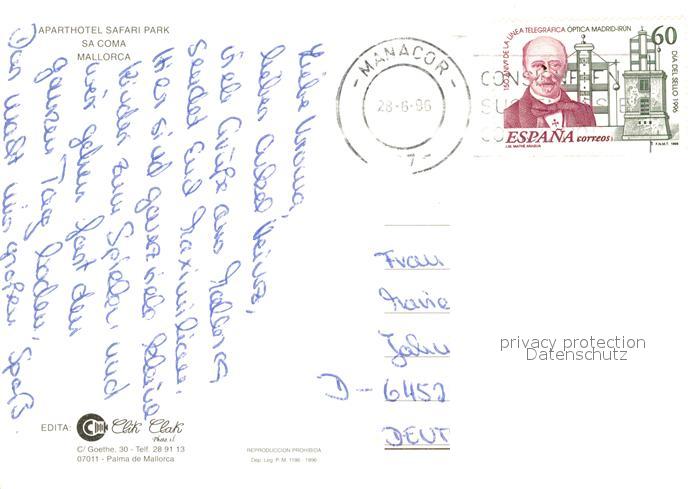 APARTHOTEL SAFARI PARK
SA COMA
MALLORCA
Liebe Uroma,
lieber Onkel Heinz,
viele Grüße aus Mallorca
sendet Euch Maximilian.
Hier sind ganz viele kleine
Kinder zum Spielen und
wir gehen fast den
ganzen Tag baden.
Das macht mir großen Spaß.
MANACOR
28-6-96
150 ANIV. DE LA LINEA TELEGRÁFICA ÓPTICA MADRID-IRÚN
60
DIA DEL SELLO 1996
ESPAÑA correos
J.M. MATHÉ ARAGUA
F.N.M.T. 1996
Frau
John
D - 6452
DEUT
privacy protection
Datenschutz
EDITA: Clik Clak
Photo s.l.
C/ Goethe, 30 - Telf. 28 91 13
07011 - Palma de Mallorca
REPRODUCCION PROHIBIDA
Dep. Leg. P. M. 1196 - 1996